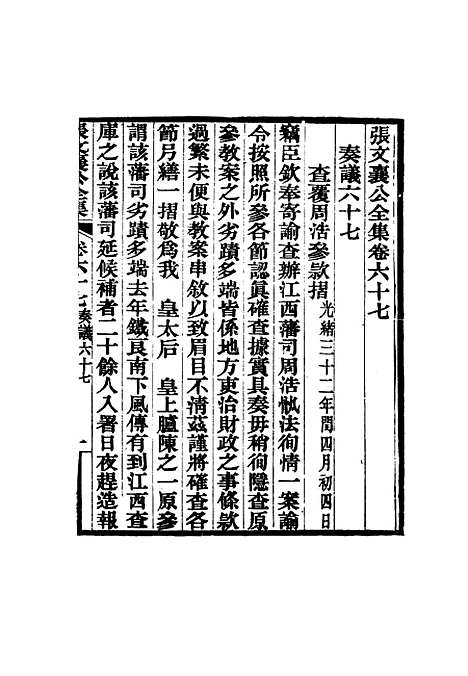 張文襄公全集卷六十七
奏議六十七
查覆周浩參款摺 光緒三十二年閏四月初四日
竊臣欽奉寄諭查辦江西藩司周浩骫法徇情一案諭
令按照所參各節認眞確查據實具奏毋稍徇隱查原
參敎案之外劣蹟多端皆係地方吏治財政之事條款
過繁未便與敎案串敘以致眉目不清茲謹將確查各
節另繕一摺敬爲我 皇太后 皇上臚陳之一原參
謂該藩司劣蹟多端去年鐵良南下風傳有到江西查
庫之說該藩司延候補者二十餘人入署日夜趕造報
張文襄公全集 卷六十七 奏議六十七 一